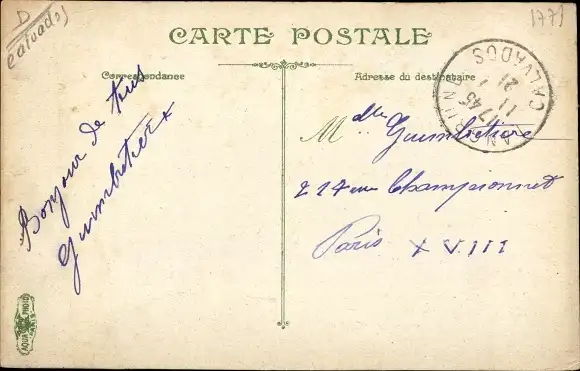 D
Calvados
1771
CARTE POSTALE
Correspondance
Adresse du destinataire
CALVADOS
1745
11
21
Bonjour de tous
Guimbretière
Mdlle Guimbretière
214 rue Championnet
Paris XVIII
AQUA PHOTO
PARIS